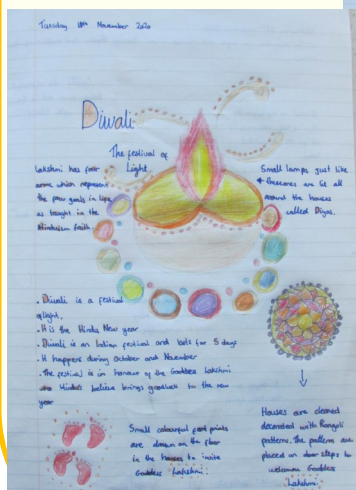 Tuesday 10th November 2020
Diwali
The festival of
Light.
Lakshmi has four
arms which represent
the four goals in life
as taught in the
Hinduism faith.
Small lamps just like
these ones are lit all
around the houses
called Diyas.
. Diwali is a festival
of light.
. It is the Hindu New year
. Diwali is an Indian festival and lasts for 5 days
. It happens during October and November
. The festival is in honour of the Goddess Lakshmi
Hindus believe brings goodluck to the new
year
Small colourful foot prints
are drawn on the floor
in the houses to invite
Goddess Lakshmi.
Houses are cleaned
decorated with Rangoli
patterns. The patterns are
placed on door steps to
welcome Goddess
Lakshmi.